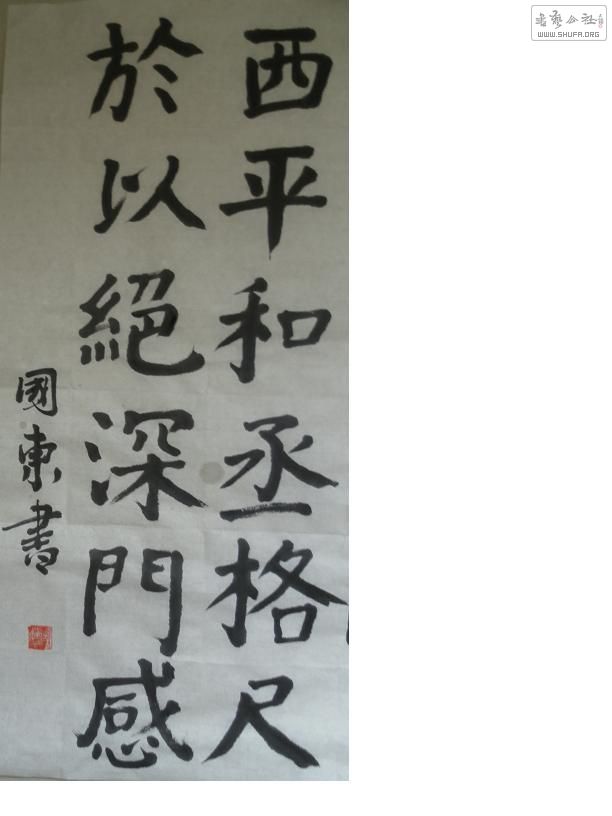 西平和丞格尺
於以絕深門感
國東書
書藝公社
WWW.SHUFA.ORG